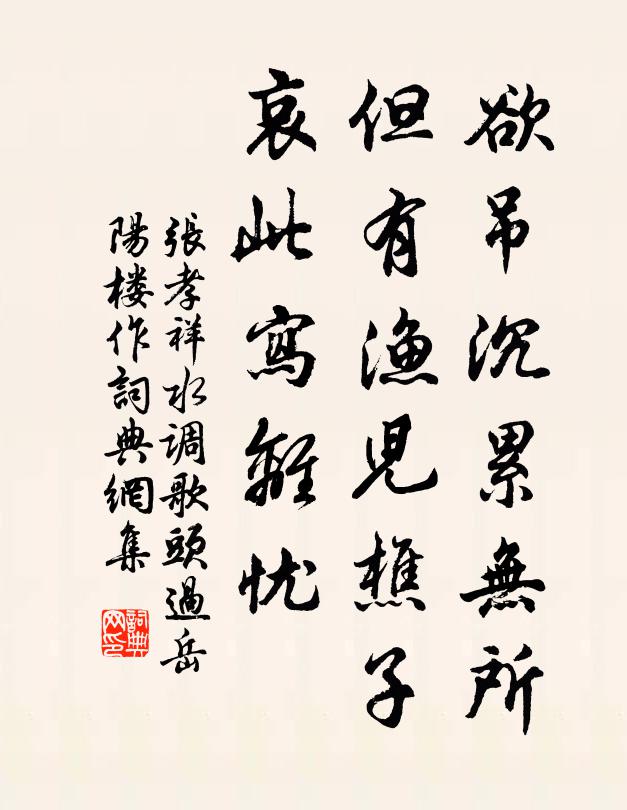 欲吊沉累無所
但有漁児樵子
哀此寫離忧
張孝祥水调歌頭過岳
陽楼作詞典網集
詞典
网印